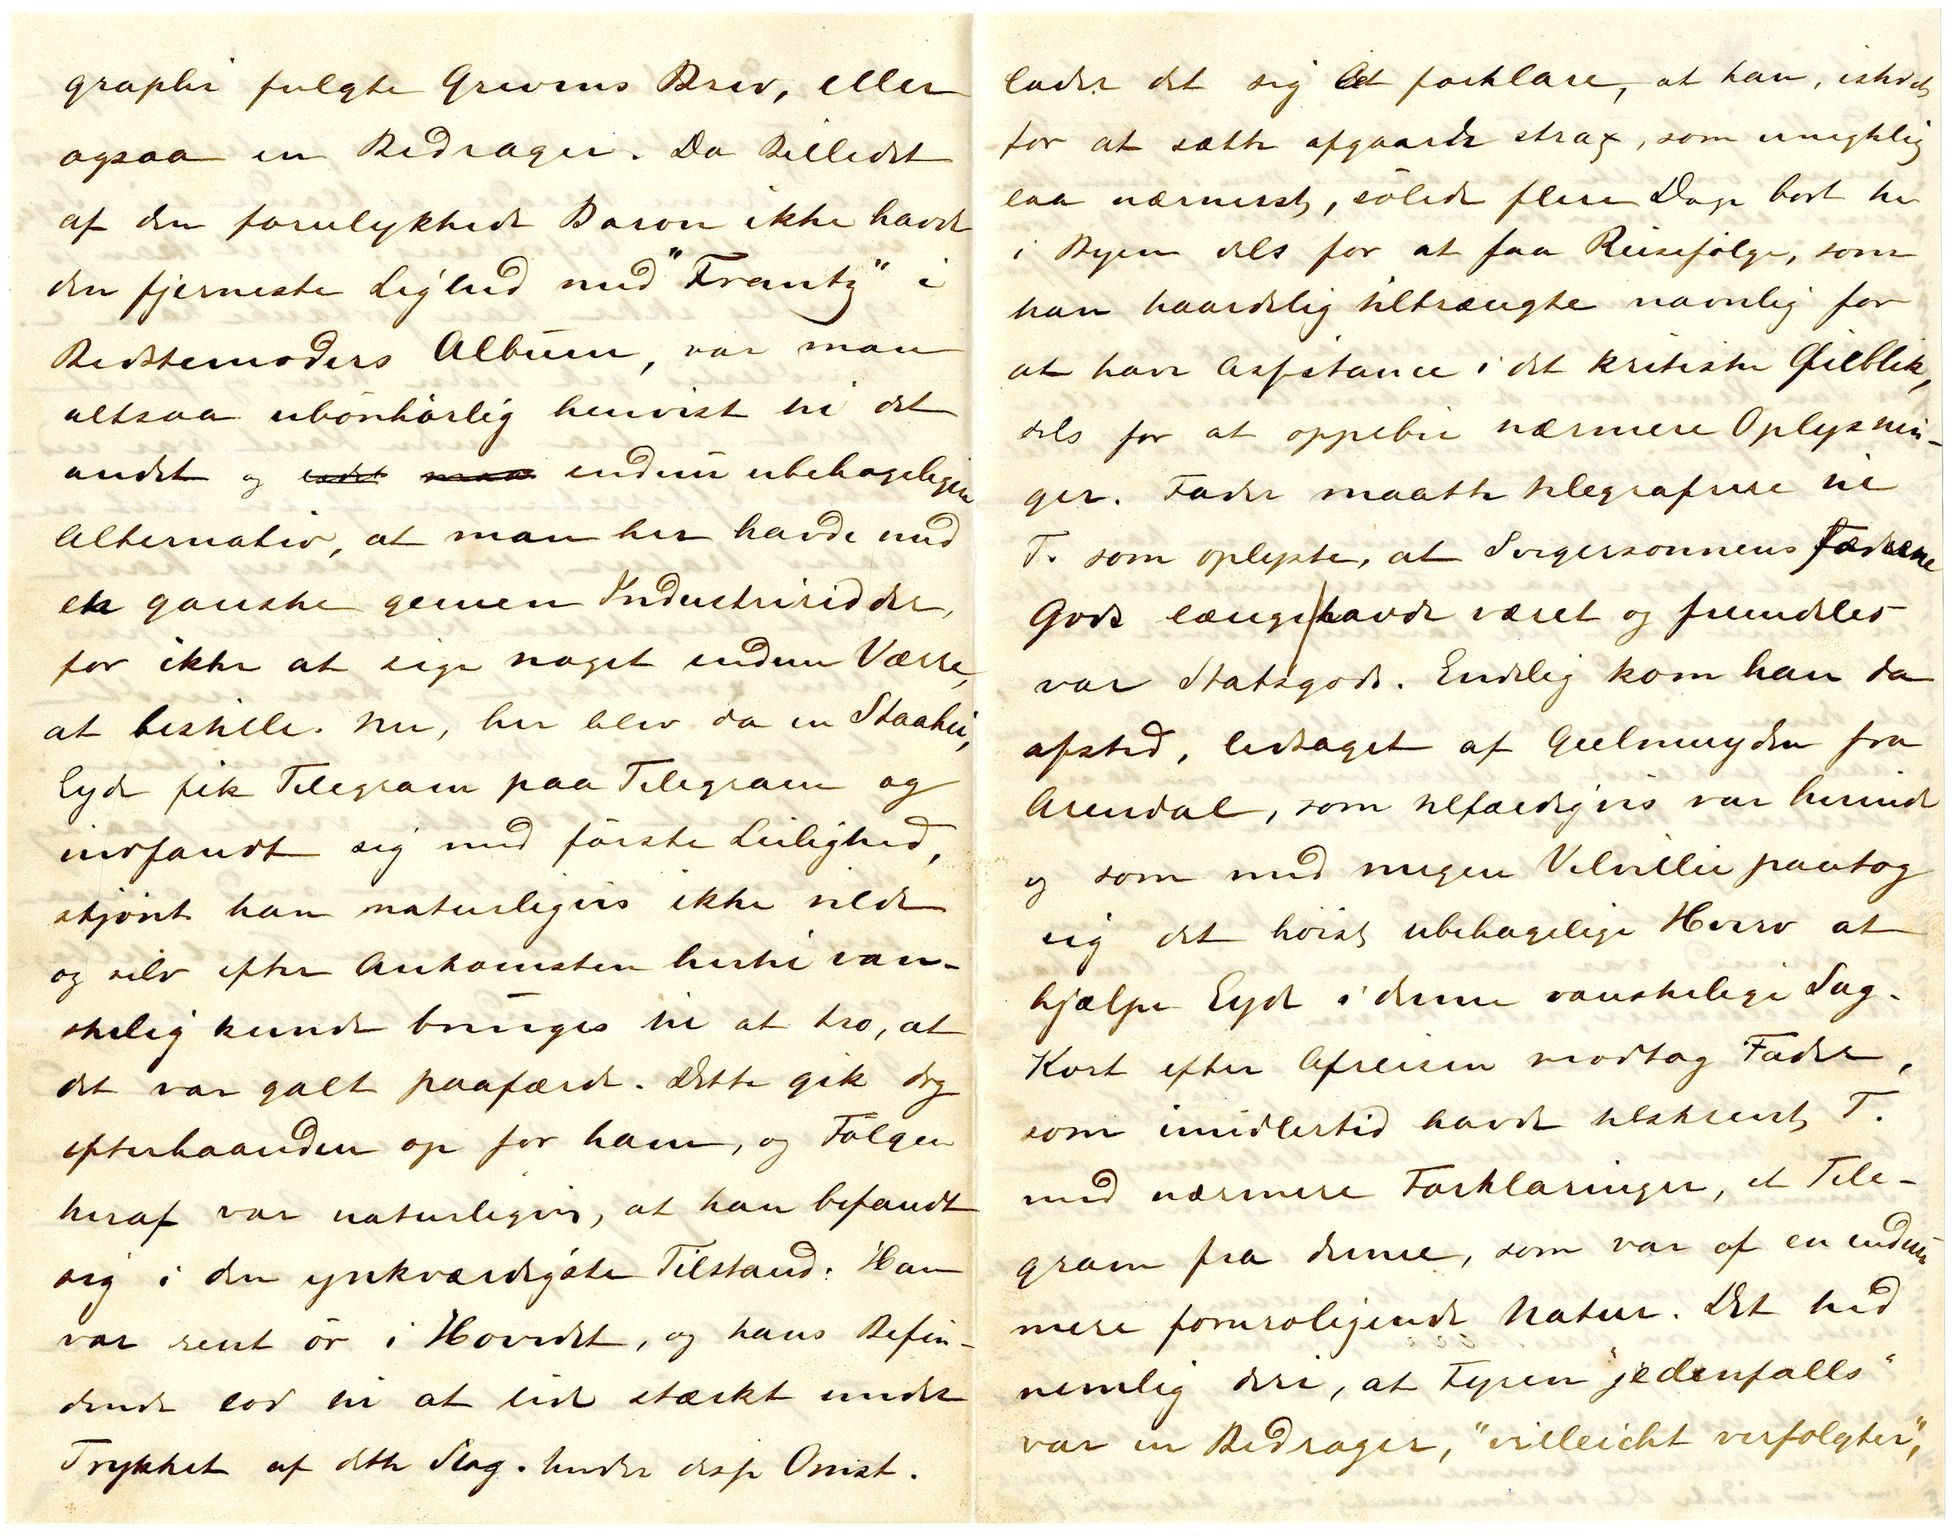 graphi fulgte Grevens Brev, eller
ogsaa en Bedrager. Da Billedet
af den forulykkede Baron ikke havde
den fjerneste Lighed med "Frantz" i
Bedstemoders Album, var man
altsaa ubönhörlig henvist til det
andet og endnu ubehageligere
Alternativ, at man her havde med
en ganske gemen Industriridder,
for ikke at sige noget endnu Værre,
at bestille. Nu, her blev da en Staahei,
Eyde fik Telegram paa Telegram og
indfandt sig med förste Leilighed,
skjönt han naturligvis ikke vilde
og selv efter Ankomsten hertil van-
skelig kunde bringes til at tro, at
det var galt paafærde. Dette gik dog
efterhaanden op for ham, og Fölgen
heraf var naturligvis, at han befandt
sig i den ynkværdigste Tilstand: Han
var rent ör i Hovedet, og hans Befin-
dende lod til at lide stærkt under
Trykket af dette Slag. Under disse Omst.
lader det sig let forklare, at han, istedet
for at sætte afgaarde strax, som unegtelig
laa nærmest, sölede flere Dage bort her
i Byen dels for at faa Reisefölge, som
han haardelig tiltrængte navnlig for
at have Assistance i det kritiske Öieblik,
dels for at oppebie nærmere Oplysnin-
ger. Fader maatte telegrafere til
T. som oplyste, at Svigersönnens Fædrene
Gods længe havde været og fremdeles
var Statsgods. Endelig kom han da
afsted, ledsaget af Geelmuyden fra
Arendal, som tilfældigvis var herinde
og som med megen Velvillie paatog
sig det höist ubehagelige Hverv at
hjælpe Eyde i denne vanskelige Sag.
Kort efter Afreisen modtog Fader,
som imidlertid havde tilskrevet T.
med nærmere Forklaringer, et Tele-
gram fra denne, som var af en endnu
mere foruroligende Natur. Det hed
nemlig deri, at Fyren "jedenfalls"
var en Bedrager, "villeicht verfolgter",